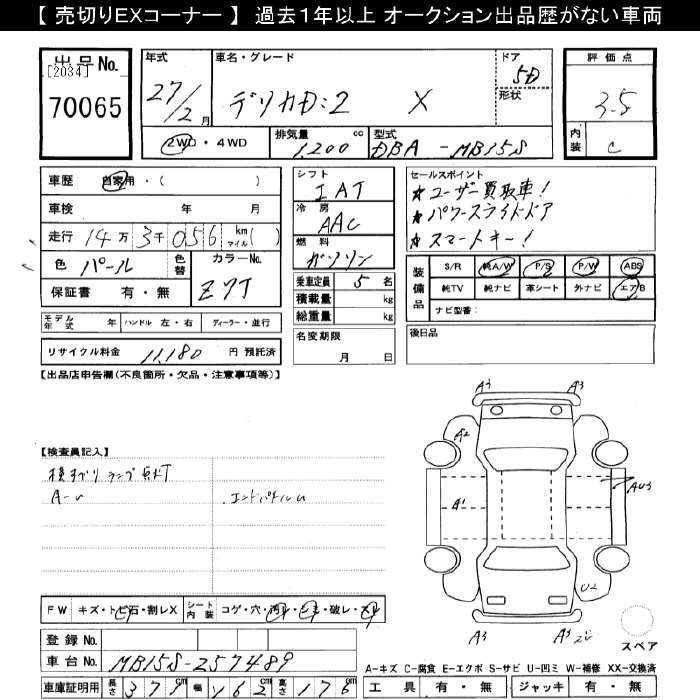 【 売切りEXコーナー 】 過去1年以上 オークション出品歴がない車両
出品No.
[2034]
70065
年式
27/2月
車名・グレード
デリカD:2 X
ドア
5D
形状
評価点
3.5
内装
C
2WD・4WD
排気量
1,200 cc
型式
DBA-MB15S
車歴 自家用・( )
車検 年 月
走行 14万3千056 km マイル( )
色 パール 色替
カラーNo.
Z7T
保証書 有・無
シフト
IAT
冷房
AAC
燃料
ガソリン
乗車定員 5 名
積載量 kg
総重量 kg
セールスポイント
★ユーザー買取車!
★パワースライドドア
★スマートキー!
装備品
S/R 純A/W P/S P/W ABS
純TV 純ナビ 革シート 外ナビ エアB
ナビ型番:
モデル年式 年 ハンドル 左・右 ディーラー・並行
リサイクル料金 11,180 円 預託済
名変期限
月 日
後日品
【出品店申告欄(不良箇所・欠品・注意事項等)】
【検査員記入】
ランプ
A-U
エンドパネルU
A3 A3
A2
A1
AU3
U2
A3 A3
スペア
FW キズ・トビ石・割レX
シート内装 コゲ・穴・汚レ・シミ・破レ・スレ
登録No.
車台No. MB15S-257489
車庫証明用 長さ 371 cm 幅 162 cm 高さ 176 cm
A-キズ C-腐食 E-エクボ S-サビ U-凹ミ W-補修 XX-交換済
工具 有・無 ジャッキ 有・無